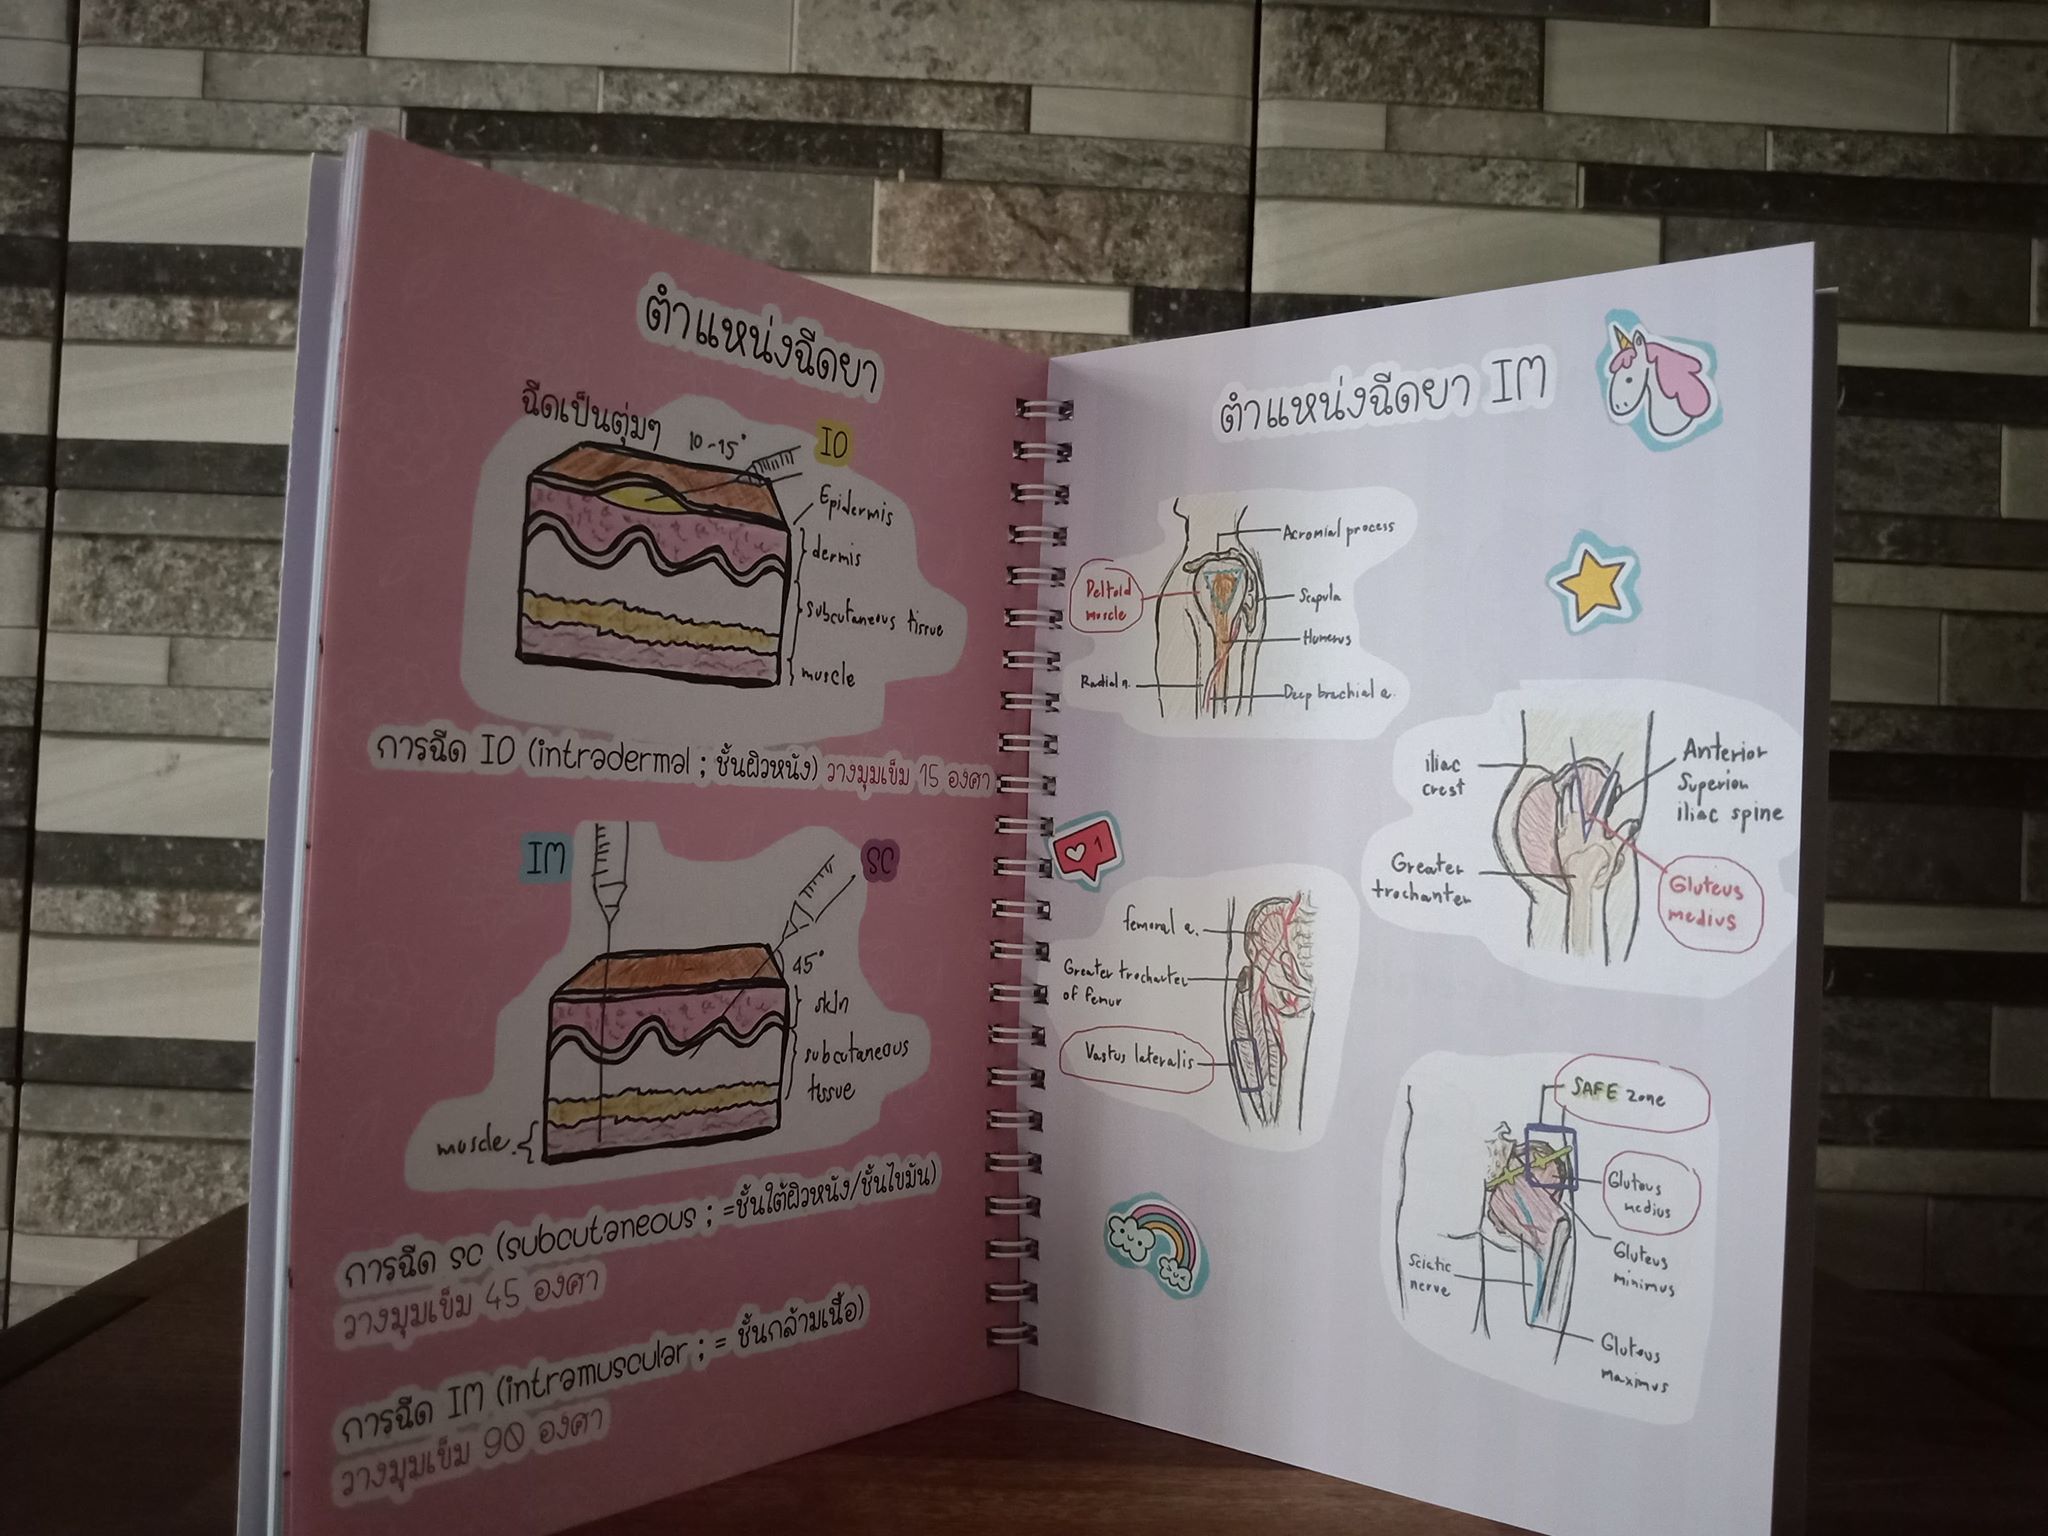 ตำแหน่งฉีดยา
ฉีดเป็นตุ่มๆ
10-15°
ID
Epidermis
dermis
subcutaneous tissue
muscle
การฉีด ID (intradermal ; ชั้นผิวหนัง) วางมุมเข็ม 15 องศา
IM
SC
45°
skin
subcutaneous
tissue
muscle.
การฉีด SC (subcutaneous ; =ชั้นใต้ผิวหนัง/ชั้นไขมัน)
วางมุมเข็ม 45 องศา
การฉีด IM (intramuscular ; = ชั้นกล้ามเนื้อ)
วางมุมเข็ม 90 องศา
ตำแหน่งฉีดยา IM
Acromial process
Deltoid
muscle
Scapula
Humerus
Radial n.
Deep brachial a.
iliac
crest
Anterior
Superion
iliac spine
Greater
trochanter
Gluteus
medius
1
femoral a.
Greater trochanter
of femur
Vastus lateralis
SAFE zone
Gluteus
medius
Gluteus
minimus
Sciatic
nerve
Gluteus
maximus